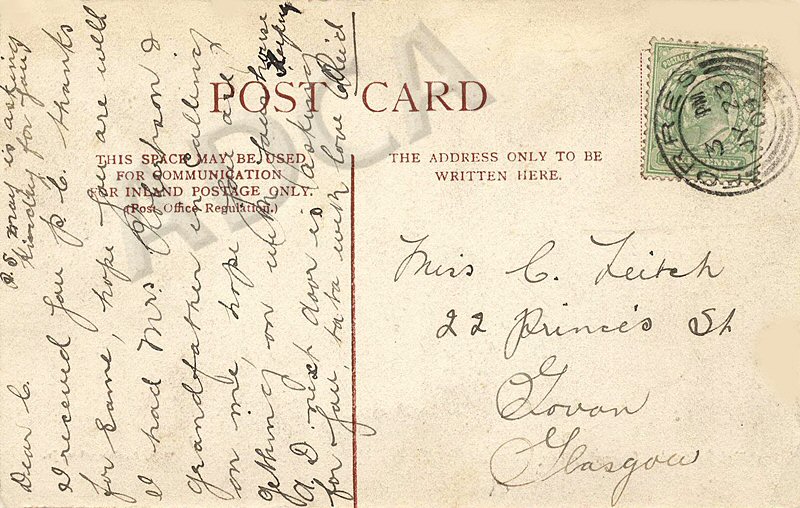 POST CARD
THIS SPACE MAY BE USED
FOR COMMUNICATION
FOR INLAND POSTAGE ONLY.
(Post Office Regulation.)
THE ADDRESS ONLY TO BE
WRITTEN HERE.
Dear C.
I received you P. C. thanks
for same, hope you are well
I had Mrs Robertson &
grandfather in calling
on me, hope you are
getting on with your house
keeping
A. D next door is asking
for you, ta ta with love
P.S. May is asking
kindley for you
Miss C. Leitch
22 Prince's St
Govan
Glasgow
FORRES
5 PM
23
POSTAGE
ADCA